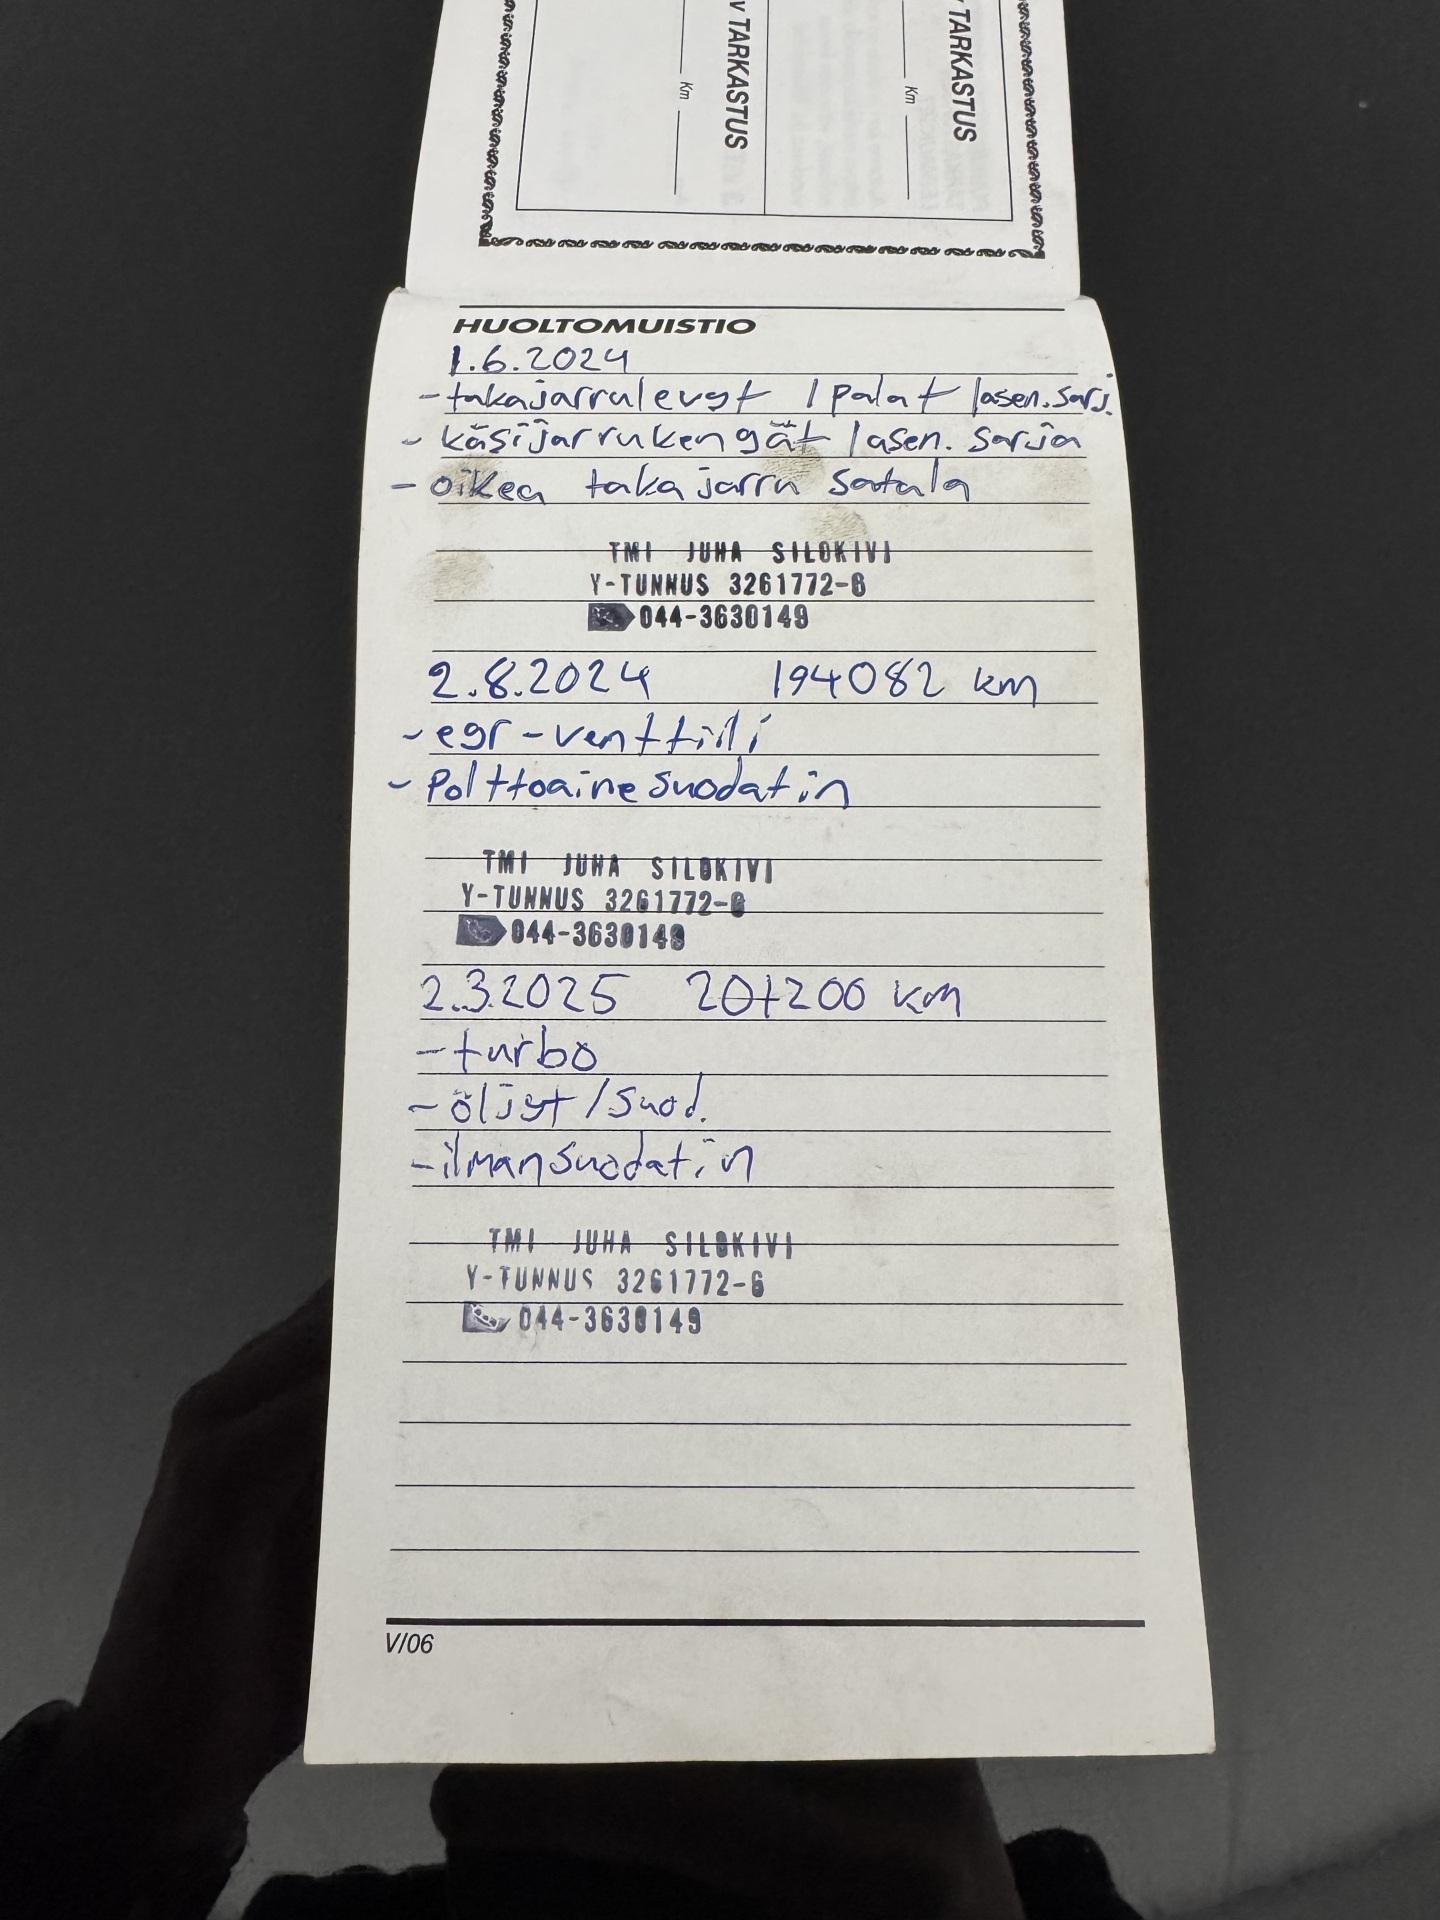 V TARKASTUS
Km
V TARKASTUS
Km
HUOLTOMUISTIO
1.6.2024
- takajarrulevyt / palat / asen.sarj.
- käsijarrukengät / asen. sarja
- oikea takajarru satula
TMI JUHA SILOKIVI
Y-TUNNUS 3261772-6
044-3630149
2.8.2024 194082 km
- egr-venttiili
- polttoainesuodatin
TMI JUHA SILOKIVI
Y-TUNNUS 3261772-6
044-3630149
2.3.2025 207200 km
- turbo
- öljyt/suod.
- ilmansuodatin
TMI JUHA SILOKIVI
Y-TUNNUS 3261772-6
044-3630149
V/06